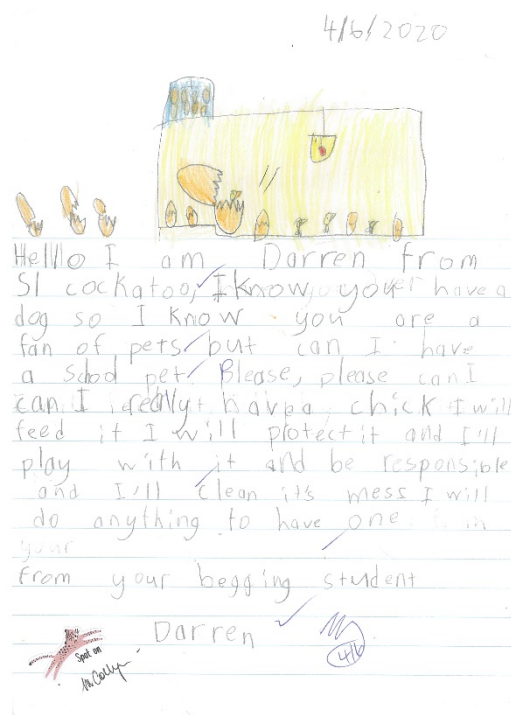 4/6/2020
Helllo I am Darren from
S1 cockatoo, I know you have a
dog so I know you are a
fan of pets but can I have
a school pet. Please, please can I
can I really have a chick I will
feed it I will protect it and I'll
play with it and be responsible
and I'll clean it's mess I will
do anything to have one in
your
from your begging student
Darren
4/6
Spot on